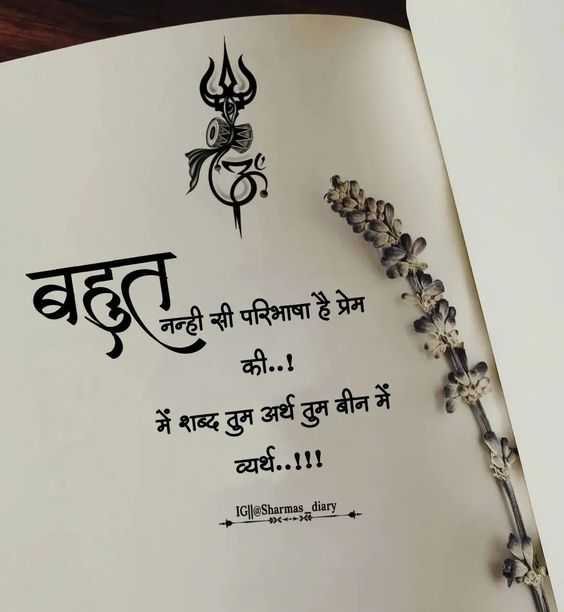 ॐ
बहुत
नन्ही सी परिभाषा है प्रेम
की..!
में शब्द तुम अर्थ तुम बीन में
व्यर्थ..!!!
IG||@Sharmas_diary